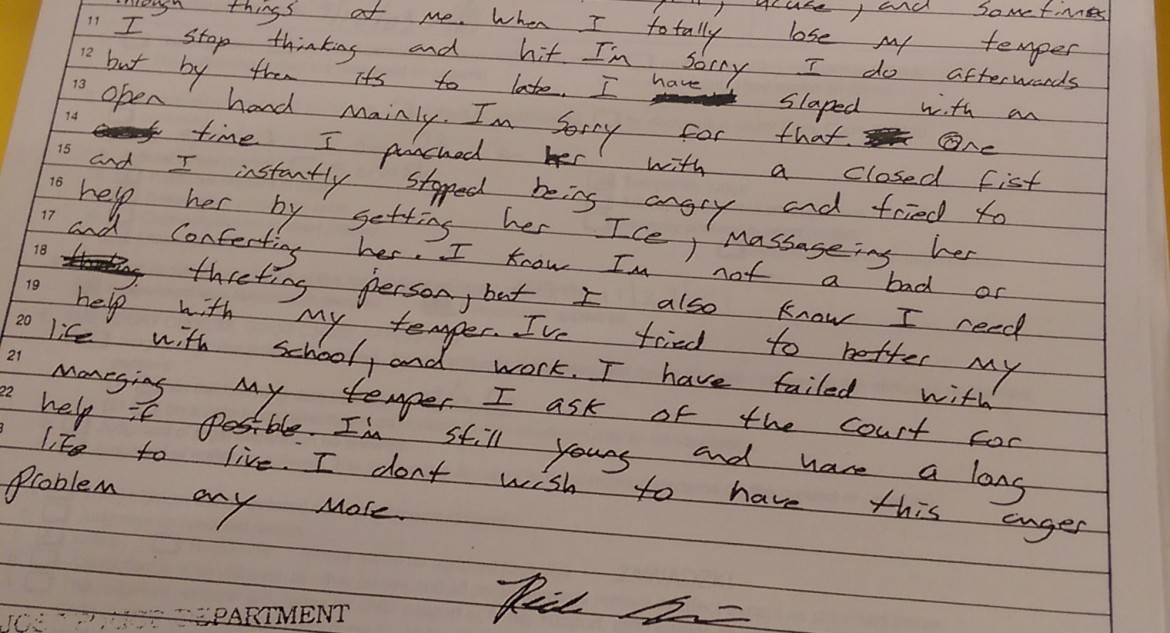 things at me. When I totally lose my temper
11 I stop thinking and hit. I'm Sorry I do afterwards
12 but by then its to late. I have slaped with an
13 open hand mainly. Im Sorry for that. One
14 time I punched her with a closed fist
15 and I instantly stopped being angry and tried to
16 help her by getting her Ice, Massageing her
17 and Conferting her. I know Im not a bad or
18 threting person, but I also know I need
19 help with my temper. Ive tried to better my
20 life with school, and work. I have failed with
21 Maneging my temper I ask of the court for
22 help if posible. I'm still young and have a long
life to live. I dont wish to have this anger
problem any More.
DEPARTMENT